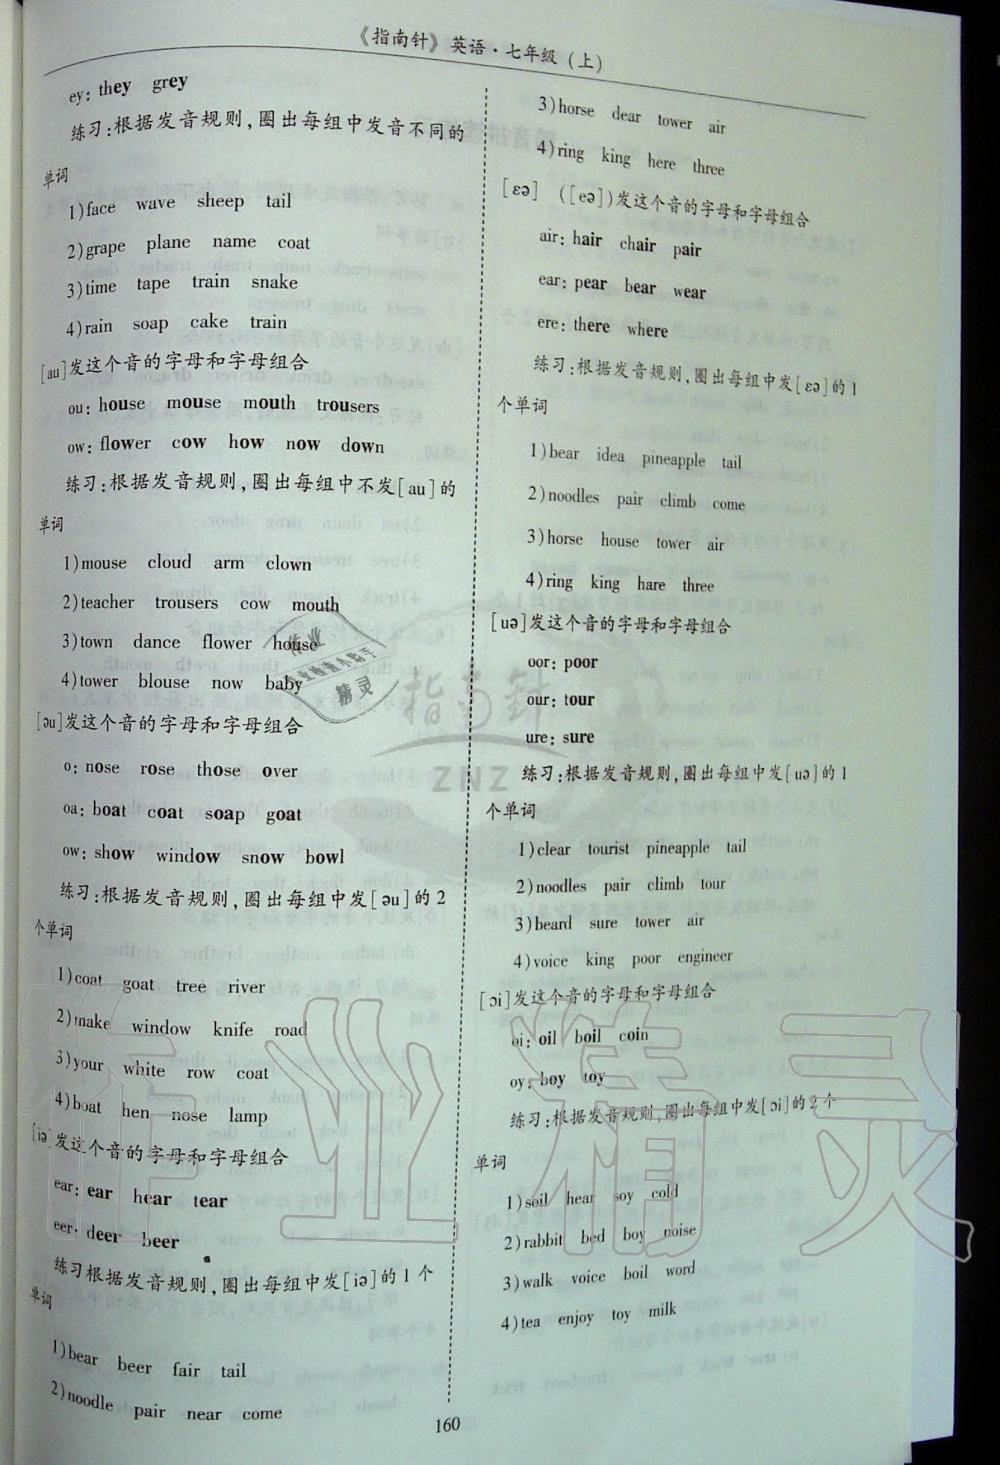 《指南针》英语·七年级(上)
ey: they grey
练习:根据发音规则,圈出每组中发音不同的
单词
1)face wave sheep tail
2)grape plane name coat
3)time tape train snake
4)rain soap cake train
[au]发这个音的字母和字母组合
ou: house mouse mouth trousers
ow: flower cow how now down
练习:根据发音规则,圈出每组中不发[au]的
单词
1)mouse cloud arm clown
2)teacher trousers cow mouth
3)town dance flower house
4)tower blouse now baby
[əu]发这个音的字母和字母组合
o: nose rose those over
oa: boat coat soap goat
ow: show window snow bowl
练习:根据发音规则,圈出每组中发[əu]的2
个单词
1)coat goat tree river
2)make window knife road
3)your white row coat
4)boat hen nose lamp
[iə]发这个音的字母和字母组合
ear: ear hear tear
eer: deer beer
练习根据发音规则,圈出每组中发[iə]的1个
单词
1)bear beer fair tail
2)noodle pair near come
3)horse dear tower air
4)ring king here three
[ɛə] ([eə])发这个音的字母和字母组合
air: hair chair pair
ear: pear bear wear
ere: there where
练习:根据发音规则,圈出每组中发[ɛə]的1
个单词
1)bear idea pineapple tail
2)noodles pair climb come
3)horse house tower air
4)ring king hare three
[uə]发这个音的字母和字母组合
oor: poor
our: tour
ure: sure
练习:根据发音规则,圈出每组中发[uə]的1
个单词
1)clear tourist pineapple tail
2)noodles pair climb tour
3)beard sure tower air
4)voice king poor engineer
[ɔi]发这个音的字母和字母组合
oi: oil boil coin
oy: boy toy
练习:根据发音规则,圈出每组中发[ɔi]的2个
单词
1)soil hear soy cold
2)rabbit bed boy noise
3)walk voice boil word
4)tea enjoy toy milk
160
指南针
ZNZ
作业
精灵
作业精灵